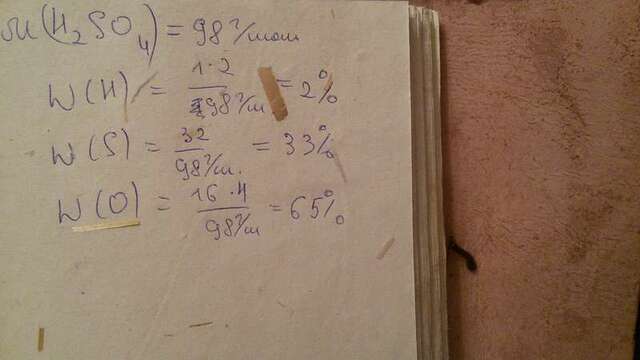 M(H₂SO₄) = 98 г/моль
W(H) = 1·2/98 г/м = 2%
W(S) = 32/98 г/м. = 33%
W(O) = 16·4/98 г/м = 65%